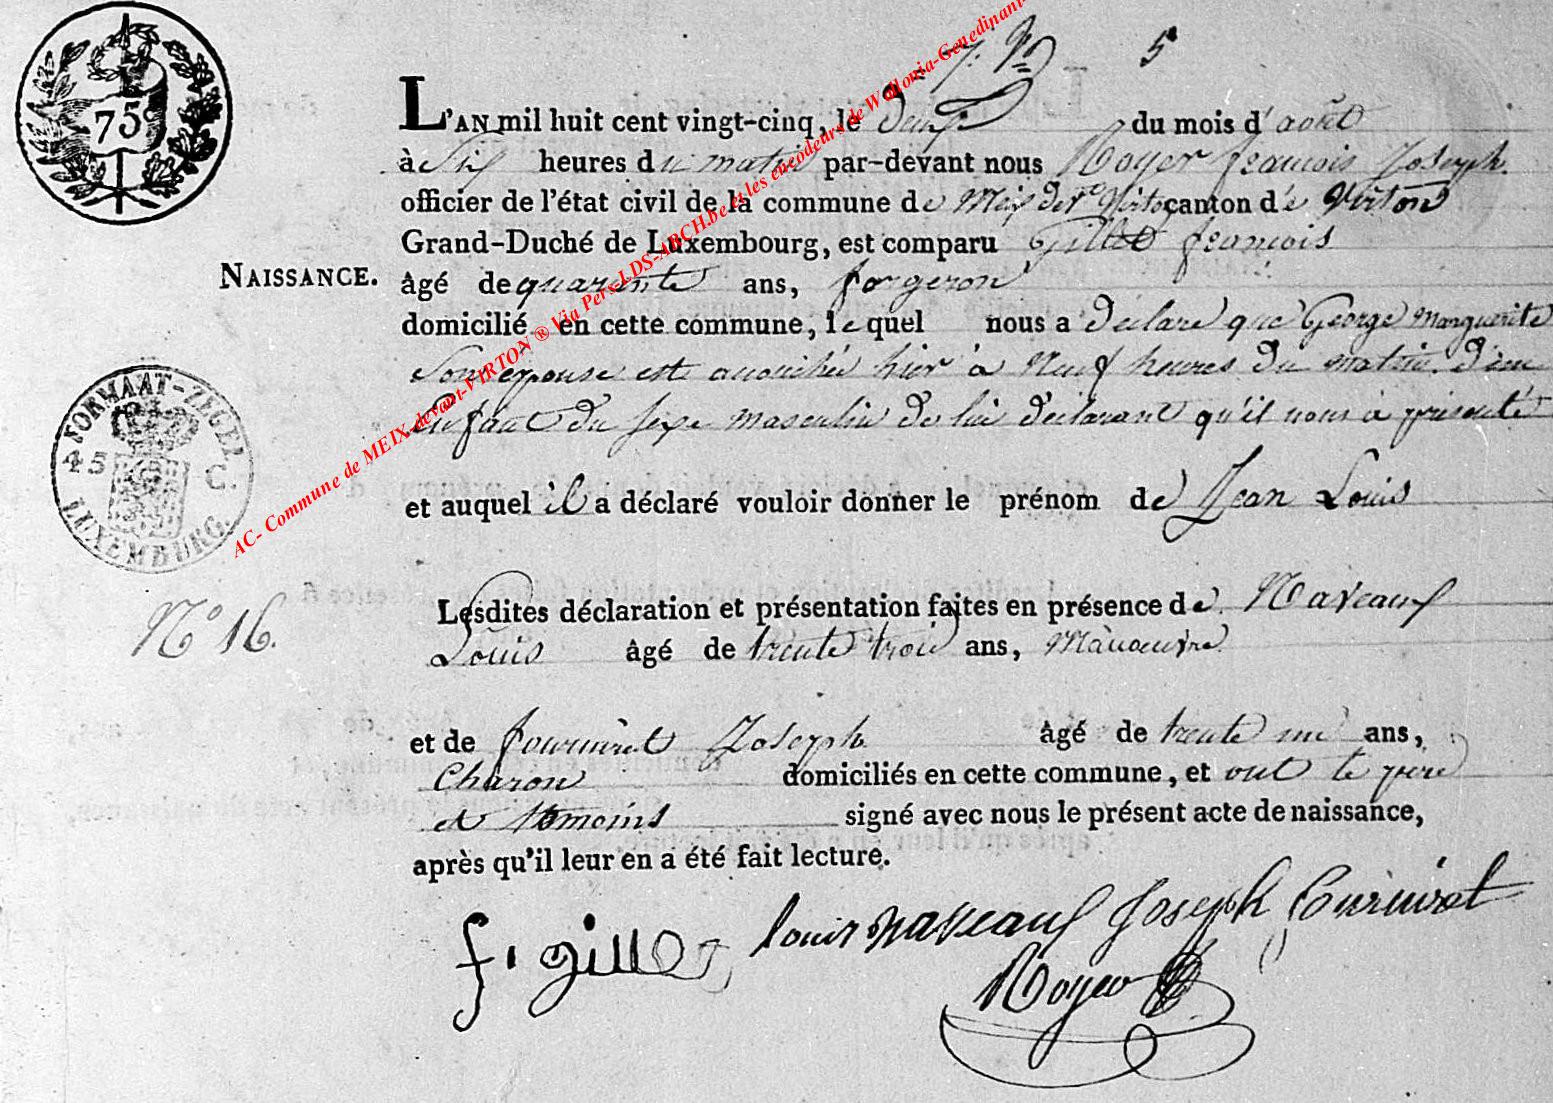 75
5
L'AN mil huit cent vingt-cinq, le deux du mois d'août
à six heures du matin par-devant nous Royer francois Joseph
officier de l'état civil de la commune de Meix devt Virton canton de Virton
Grand-Duché de Luxembourg, est comparu Gillet françois
NAISSANCE.
âgé de quarante ans, forgeron
domicilié en cette commune, lequel nous a déclaré que George Marguerite
Son epouse est accouchée hier à Neuf heures du matin d'un
Enfant du sexe masculin de lui déclarant qu'il nous à présenté
et auquel il a déclaré vouloir donner le prénom de Jean Louis
FORMAAT-ZEGEL
45 C.
LUXEMBURG.
No 16.
Lesdites déclaration et présentation faites en présence de Naveaux
Louis âgé de trente trois ans, Manoeuvre
et de fourniret Joseph âgé de trente un ans,
Charon domiciliés en cette commune, et ont le pere
et temoins signé avec nous le présent acte de naissance,
après qu'il leur en a été fait lecture.
f. gillet louis naveaux Joseph furniret
Royer
AC- Commune de MEIX-devant-VIRTON ® Via Pers-LDS-ARCH.be et les encodeurs de Wallonia-Genedinant